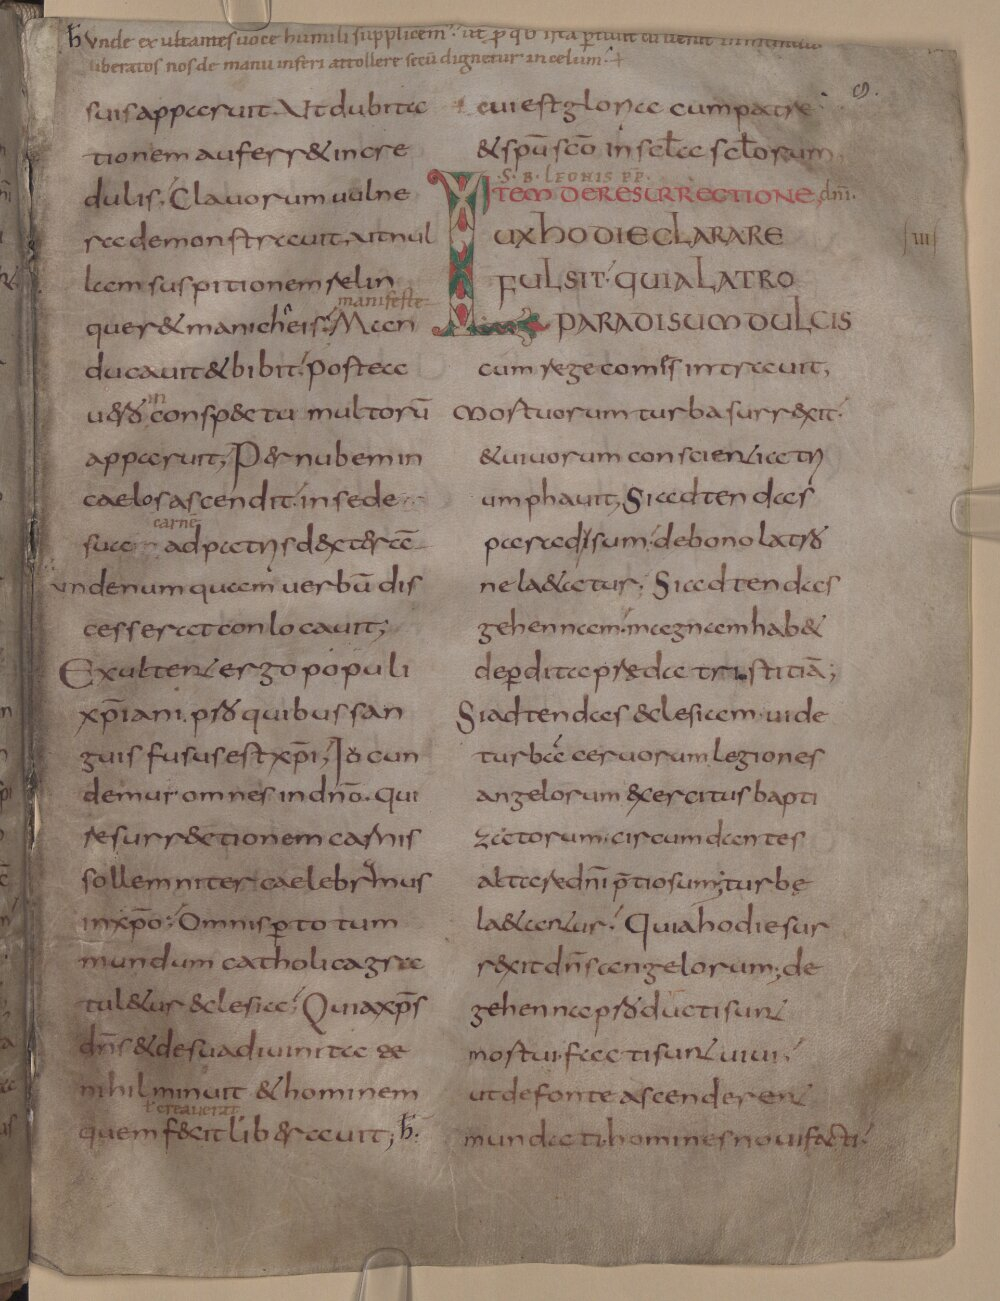 h̄ Vnde exultantes uoce humili supplicem; ut p̄ quo ista
liberatos nos de manu inferi attollere secū dignetur in celum;
suis apparuit. Ut dubita
tionem auferr& incre
dulis; Clauorum uulne
ra demonstrauit, ut nul
lam suspitionem relin
manifeste
quer& manicheis; Man
ducauit & bibit; Postea
in
uero conspectu multorū
apparuit; Per nubem in
caelos ascendit in sede
carnē
sua ad patris dexterā
unde numquam uerbū dis
cesserat conlocauit;
Exultent ergo populi
xp̄iani. pro quibus san
guis fusus est xp̄i; Iocun
demur omnes in dn̄o. qui
resurr&tionem carnis
sollemniter caelebramus
in xp̄o; Omnis per totum
mundum catholica gra
tul&ur &clesia; Quia xp̄s
dn̄s & de sua diuinitate
nihil minuit & hominem
ł creauerat
quem fecit liberauit; h̄.
cui est gloria cum patre
& spū scō in scła scłorum,
S. B. LEONIS PP.
ITEM DE RESURRECTIONE dn̄i.
LUX HODIE CLARA RE
III
FULSIT; QUIA LATRO
PARADISUM DULCIS
cum rege comis intrauit,
mortuorum turba surrexit;
& uiuorum conscientia tri
umphauit; Si adtendas
paradisum; de bono latro
ne la&atur; Si adtendas
gehennam; magnam hab&
de perdita preda tristitiā;
Si adtendas &clesiam. uide
turba ceruorum legiones
angelorum exercitus bapti
zatorum; circumdantes
altare dn̄i p̄tiosum; turbę
la&antur; Quia hodie sur
rexit dn̄s angelorum; de
gehenna producti sunt
mortui. facti sunt uiui;
ut de fonte ascenderent
mundati. homines noui facti;